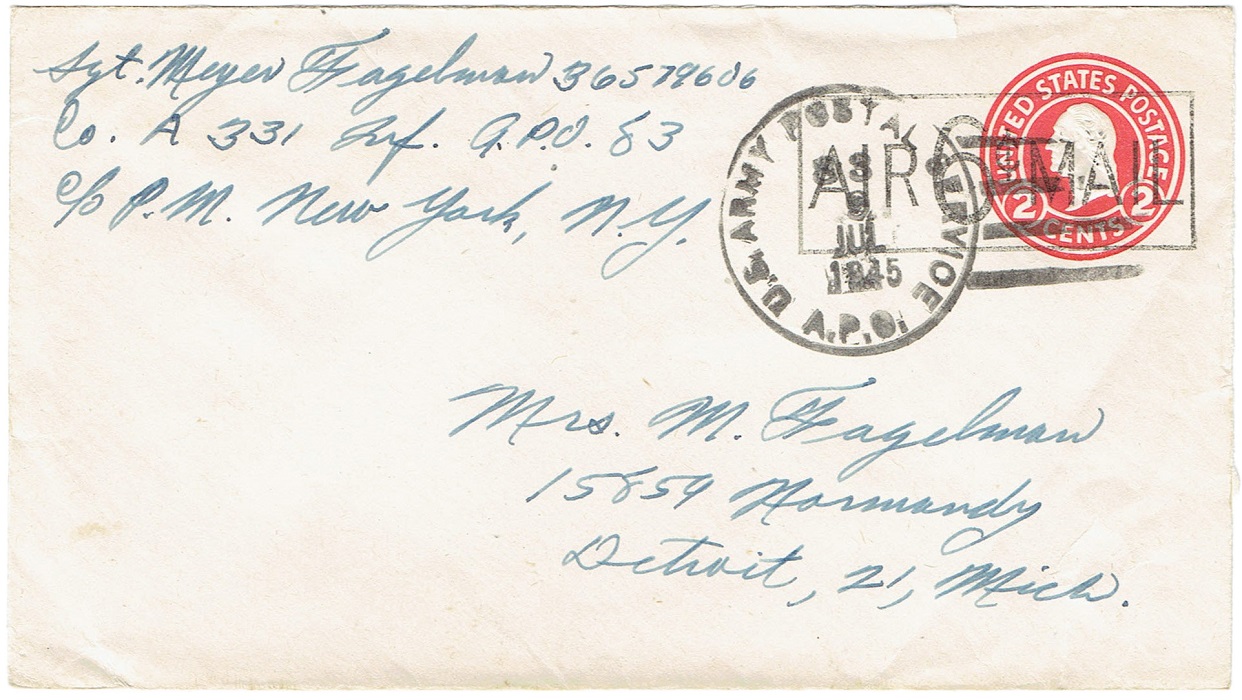 Sgt. Meyer Fagelman 36579606
Co. A 331 Inf. A.P.O. 83
c/o P.M. New York, N.Y.
U.S. ARMY POSTAL SERVICE
JUL
1945
A.P.O.
AIR MAIL
UNITED STATES POSTAGE
2 CENTS 2
Mrs. M. Fagelman
15859 Normandy
Detroit, 21, Mich.